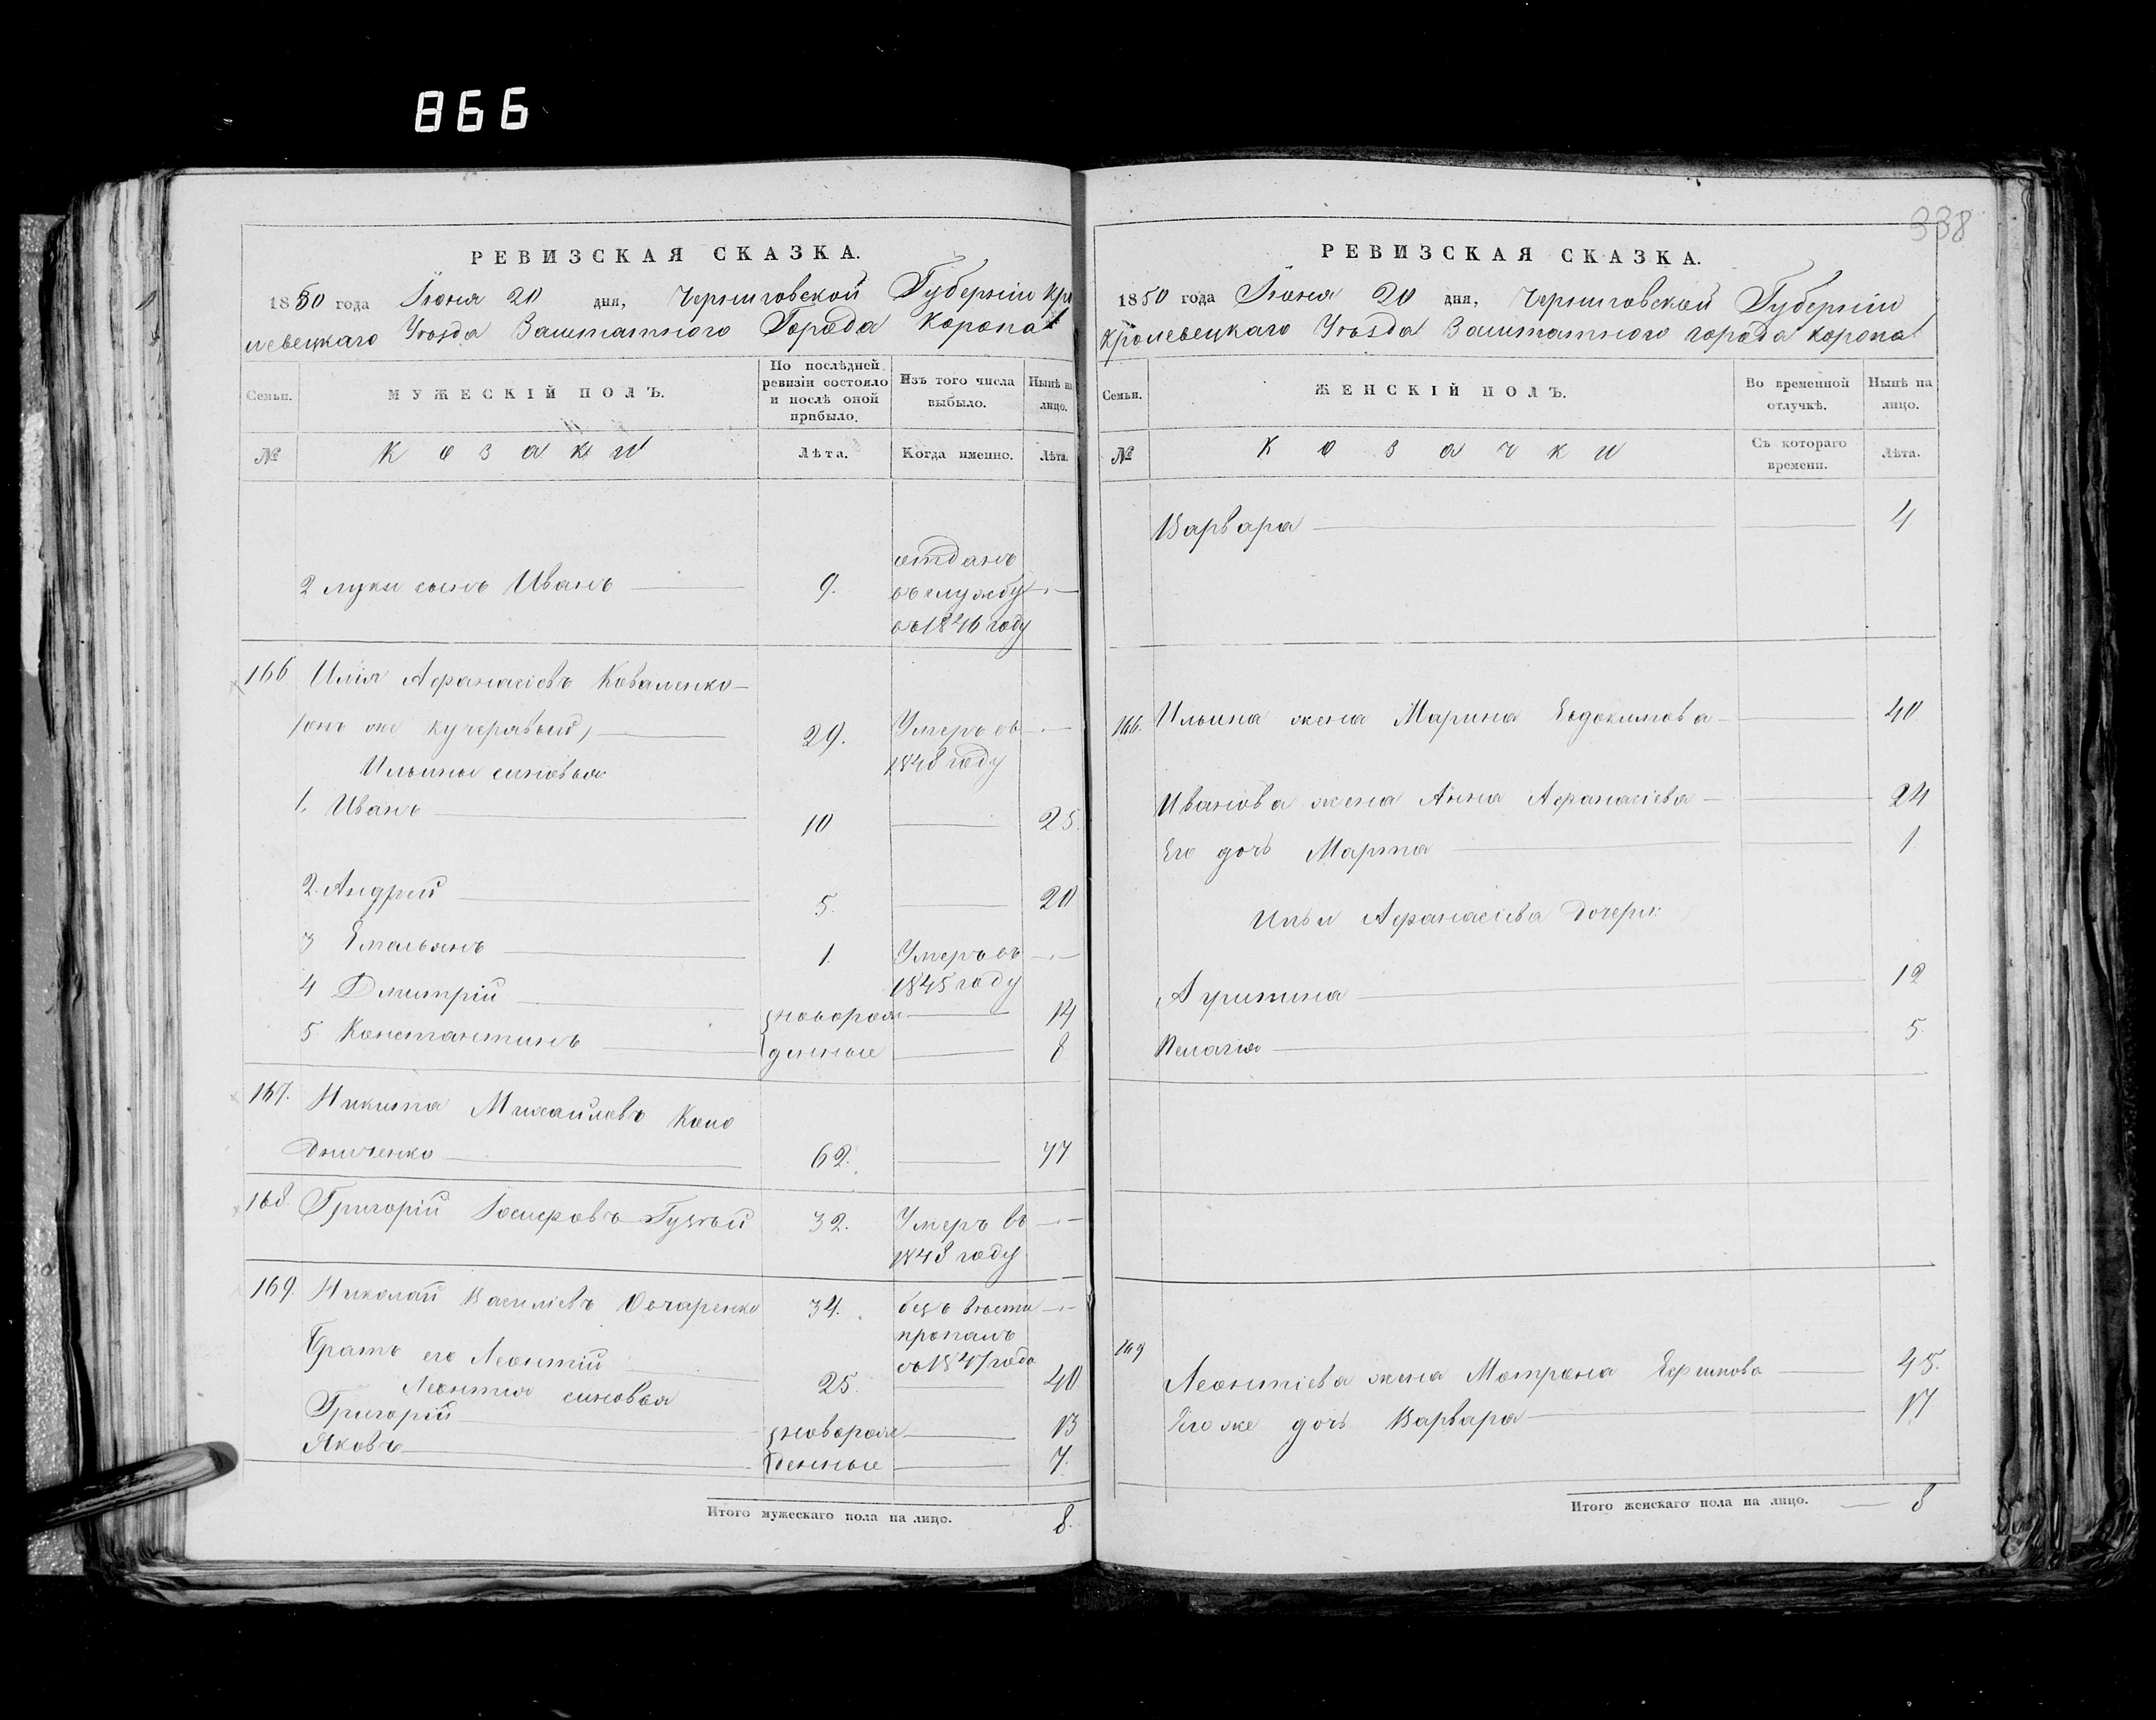 866
РЕВИЗСКАЯ СКАЗКА.
1850 года Іюня 20 дня, Черниговской Губерніи Кро
левецкаго Уѣзда Заштатнаго Города Коропа
Семьи.
МУЖЕСКІЙ ПОЛЪ.
По послѣдней ревизіи состояло и послѣ оной прибыло.
Изъ того числа выбыло.
Нынѣ на лицо.
№
Козаки
Лѣта.
Когда именно.
Лѣта.
отданъ
2 Луки сынъ Иванъ 9. въ службу
въ 1846 году
166 Илія Афанасіевъ Коваленко
/онъ же Кучерявый/ 29. Умеръ въ
1848 году
Ильины синовья
1. Иванъ 10 25.
2. Андрей 5. 20
3 Емельянъ 1. Умеръ въ
1845 году
4 Дмитрій новорож 14
5 Константинъ денные 8
167. Никита Михайловъ Коло
дниченко 62. 77
168. Григорій Іосифовъ Густый 32. Умеръ въ
1848 году
169. Николай Василіевъ Овчаренко 34. безъ вѣсти
пропалъ
съ 1847 года
Братъ его Леонтій 25. 40
Леонтія синовья
Григорій новорож 13
Яковъ денные 7.
Итого мужескаго пола на лицо. 8.
338
РЕВИЗСКАЯ СКАЗКА.
1850 года Іюня 20 дня, Черниговской Губерніи
Кролевецкаго Уѣзда Заштатного города Коропа
Семьи.
ЖЕНСКІЙ ПОЛЪ.
Во временной отлучкѣ.
Нынѣ на лицо.
№
Козачки
Съ котораго времени.
Лѣта.
Варвара 4
166. Ильина жена Марина Евдокимова 40
Иванова жена Анна Афанасіева 24
Его дочь Марѳа 1
Ильи Афанасіева дочери:
Агрипина 12
Пелагія 5.
169
Леонтіева жена Мотрона Ефимова 45.
Его же дочь Варвара 17
Итого женскаго пола на лицо. 8